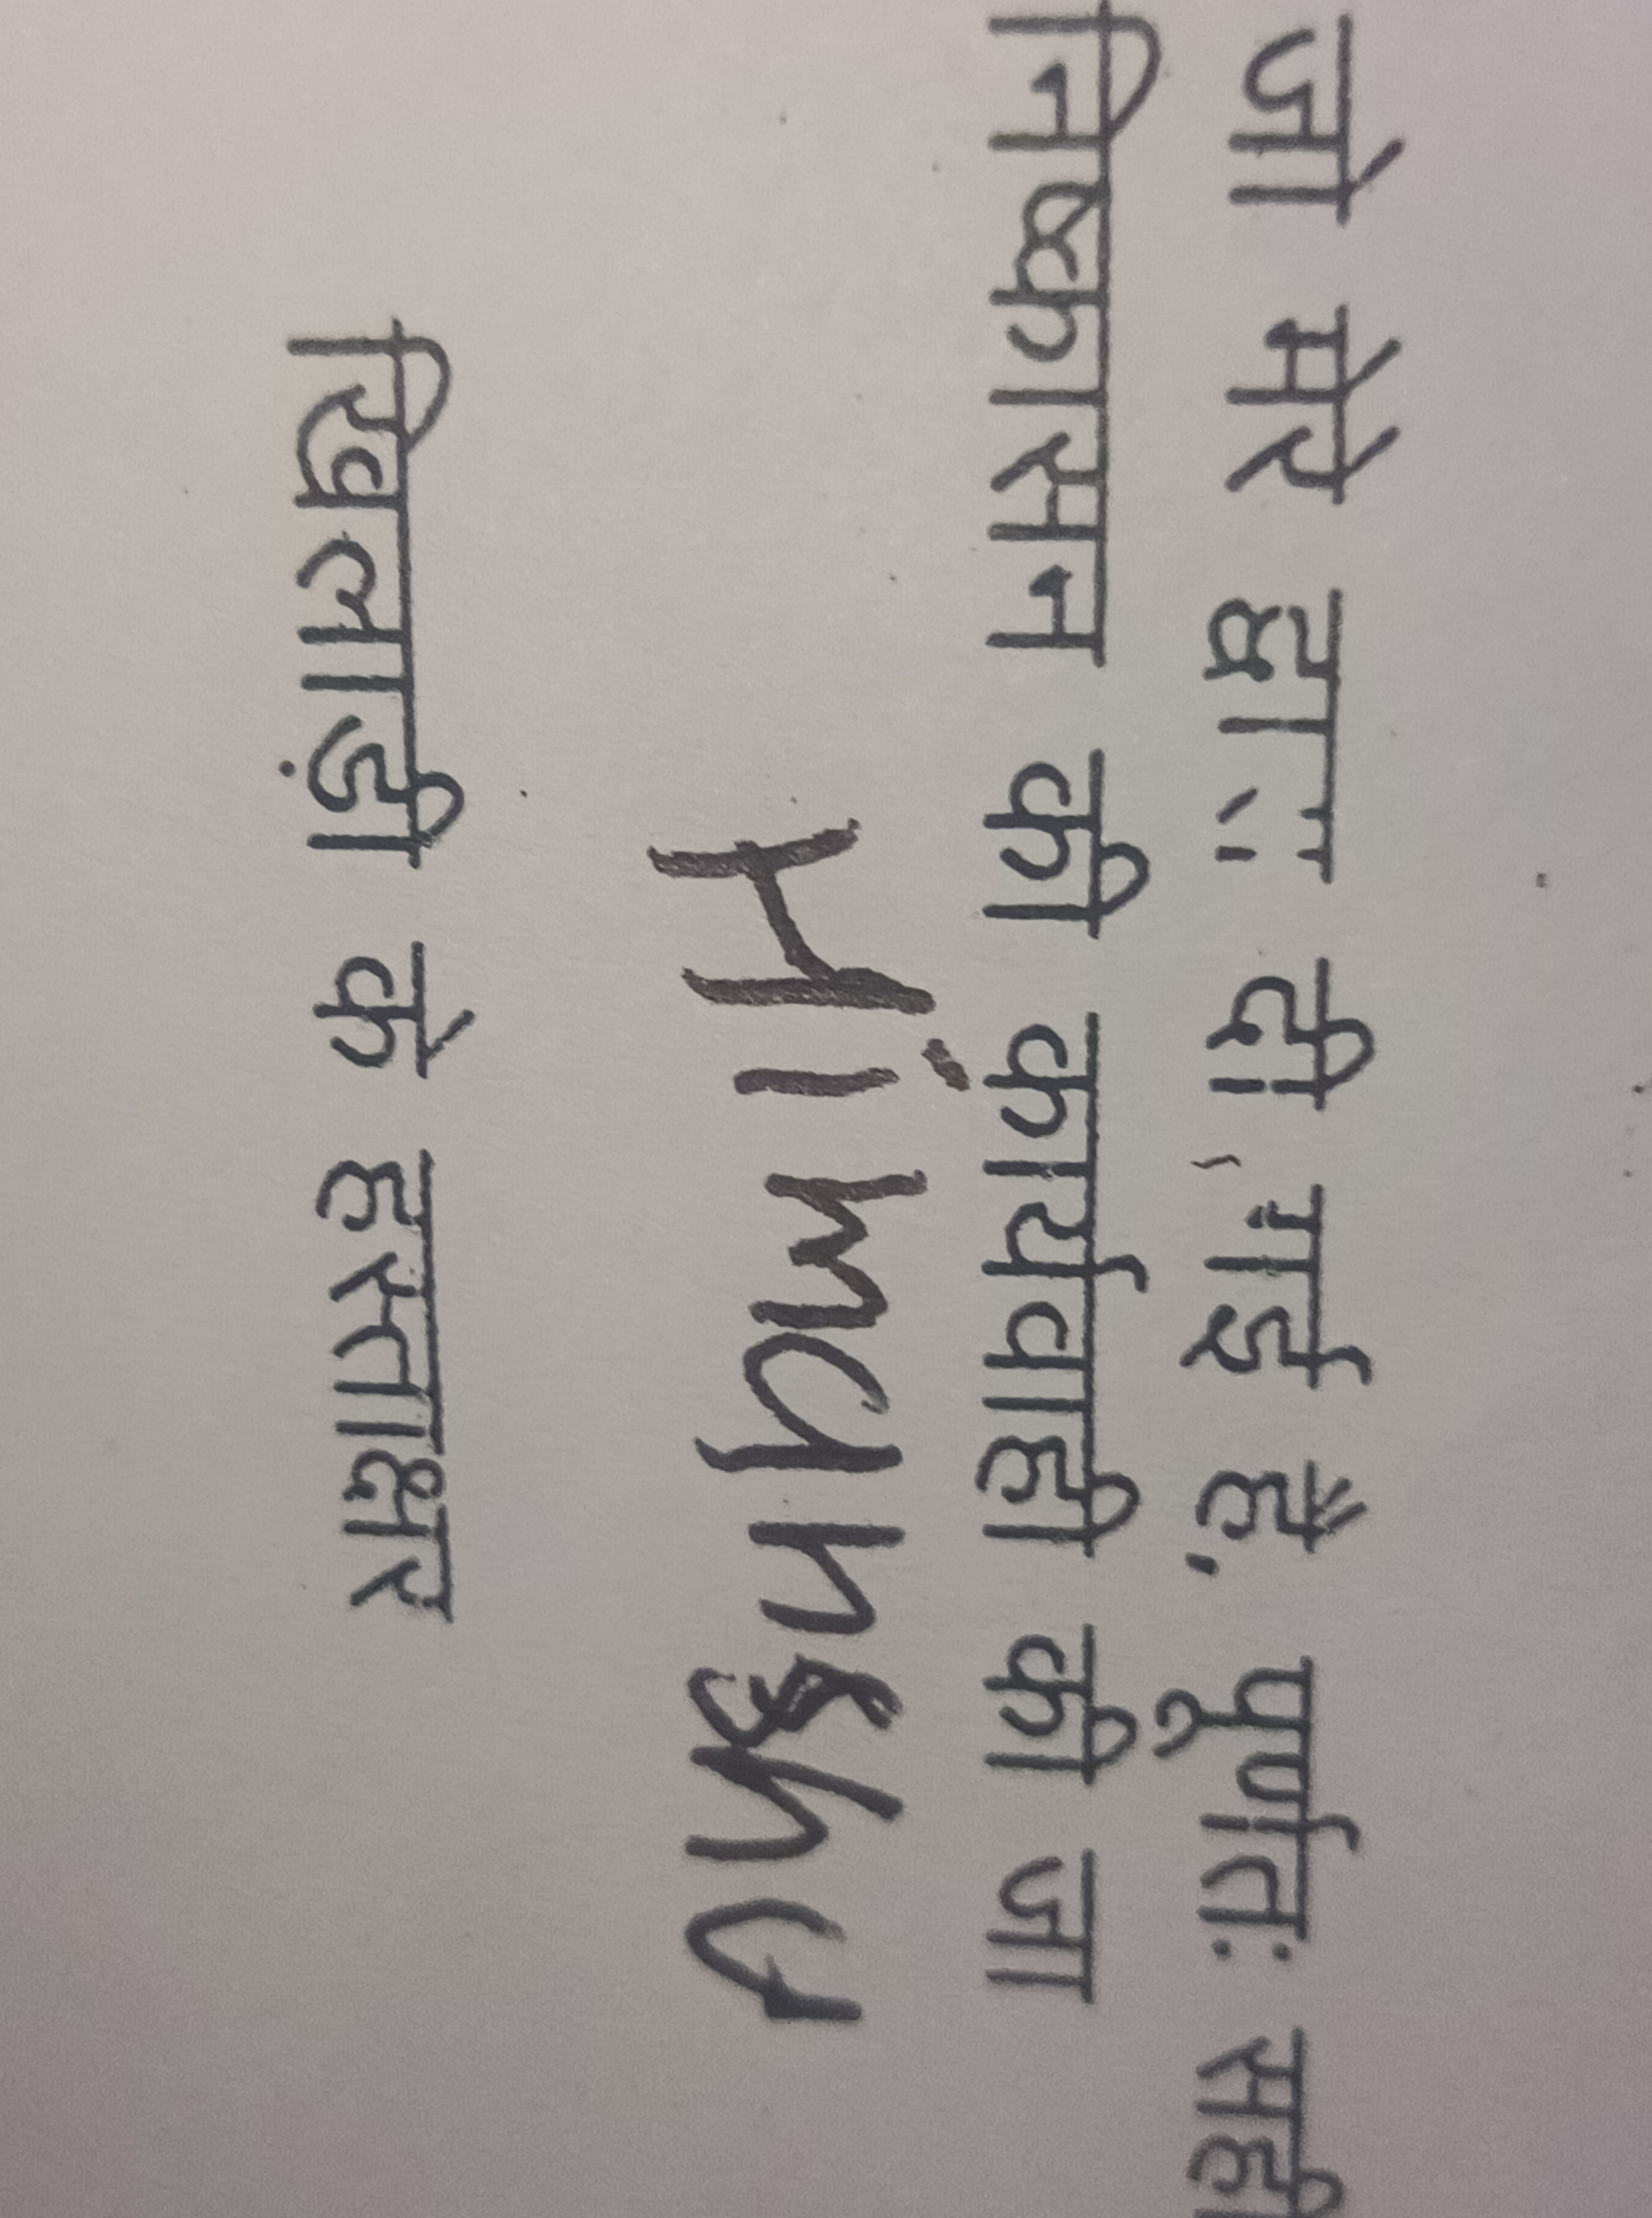 जो मेरे द्वारा दी गई है, पूर्णतः सही
निष्कासन की कार्यवाही की जा
Himanshu
खिलाड़ी के हस्ताक्षर